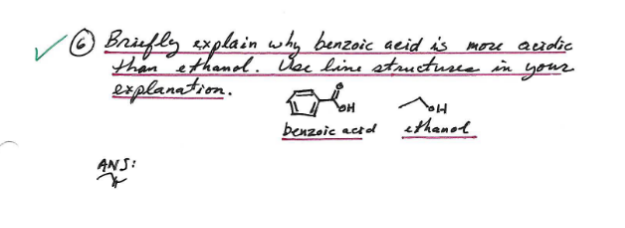 ⑥ Briefly explain why benzoic acid is more acidic
than ethanol. Use line structures in your
explanation.
O
OH
OH
benzoic acid ethanol
ANS: